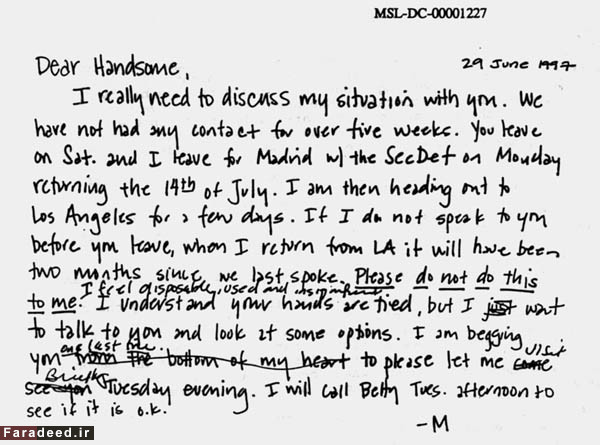 MSL-DC-00001227
29 June 1997
Dear Handsome,
I really need to discuss my situation with you. We
have not had any contact for over five weeks. You leave
on Sat. and I leave for Madrid w/ the SecDef on Monday
returning the 14th of July. I am then heading out to
Los Angeles for a few days. If I do not speak to you
before you leave, when I return from LA it will have been
two months since we last spoke. Please do not do this
I feel disposable, used and insignificant
to me. I understand your hands are tied, but I just want
to talk to you and look at some options. I am begging
one last time visit
you from the bottom of my heart to please let me come
Briefly
see you Tuesday evening. I will call Betty Tues. afternoon to
see if it is o.k.
-M
Faradeed.ir